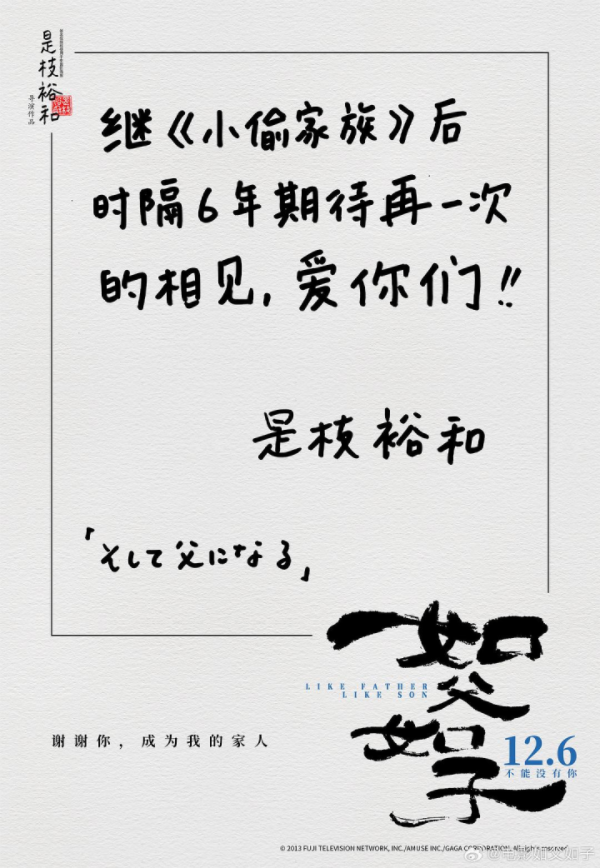 是枝裕和
导演作品
继《小偷家族》后
时隔6年期待再一次
的相见,爱你们!!
是枝裕和
「そして父になる」
如父如子
LIKE FATHER
LIKE SON
12.6
不能没有你
谢谢你,成为我的家人
© 2013 FUJI TELEVISION NETWORK, INC./AMUSE INC./GAGA CORPORATION. All rights reserved.
@电影如父如子